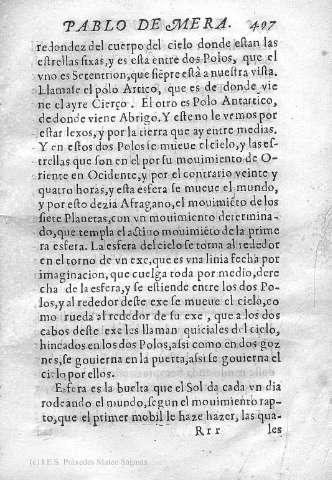 PABLO DE MERA. 497
redondez del cuerpo del cielo donde estan las
estrellas fixas, y es esta entre dos Polos, que el
vno es Setentrion, que siẽpre està a nuestra vista.
Llamase el polo Artico, que es de donde vie
ne el ayre Cierço. El otro es Polo Antartico,
de donde viene Abrigo. Y este no le vemos por
estar lexos, y por la tierra que ay entre medias.
Y en estos dos Polos se mueue el cielo, y las es-
trellas que son en el por su mouimiento de O-
riente en Ocidente, y por el contrario veinte y
quatro horas, y esta esfera se mueue el mundo,
y por esto dezia Afragano, el mouimiẽto de los
siete Planetas, con vn mouimiento determina-
do, que templa el actiuo mouimiẽto de la prime
ra esfera. La esfera del cielo se torna al rededor
en el torno de vn exe, que es vna linia fecha por
imaginacion, que cuelga toda por medio, dere
cha de la esfera, y se estiende entre los dos Po-
los, y al rededor deste exe se mueue el cielo, co
mo rueda al rededor de su exe, que a los dos
cabos deste exe les llaman quiciales del cielo,
hincados en los dos Polos, assi como en dos goz
nes, se gouierna en la puerta, assi se gouierna el
cielo por ellos.
Esfera es la buelta que el Sol da cada vn dia
rodeando el mundo, segun el mouimiento rap-
to, que el primer mobil le haze hazer, las qua-
Rrr les
(c) I.E.S. Práxedes Mateo Sagasta